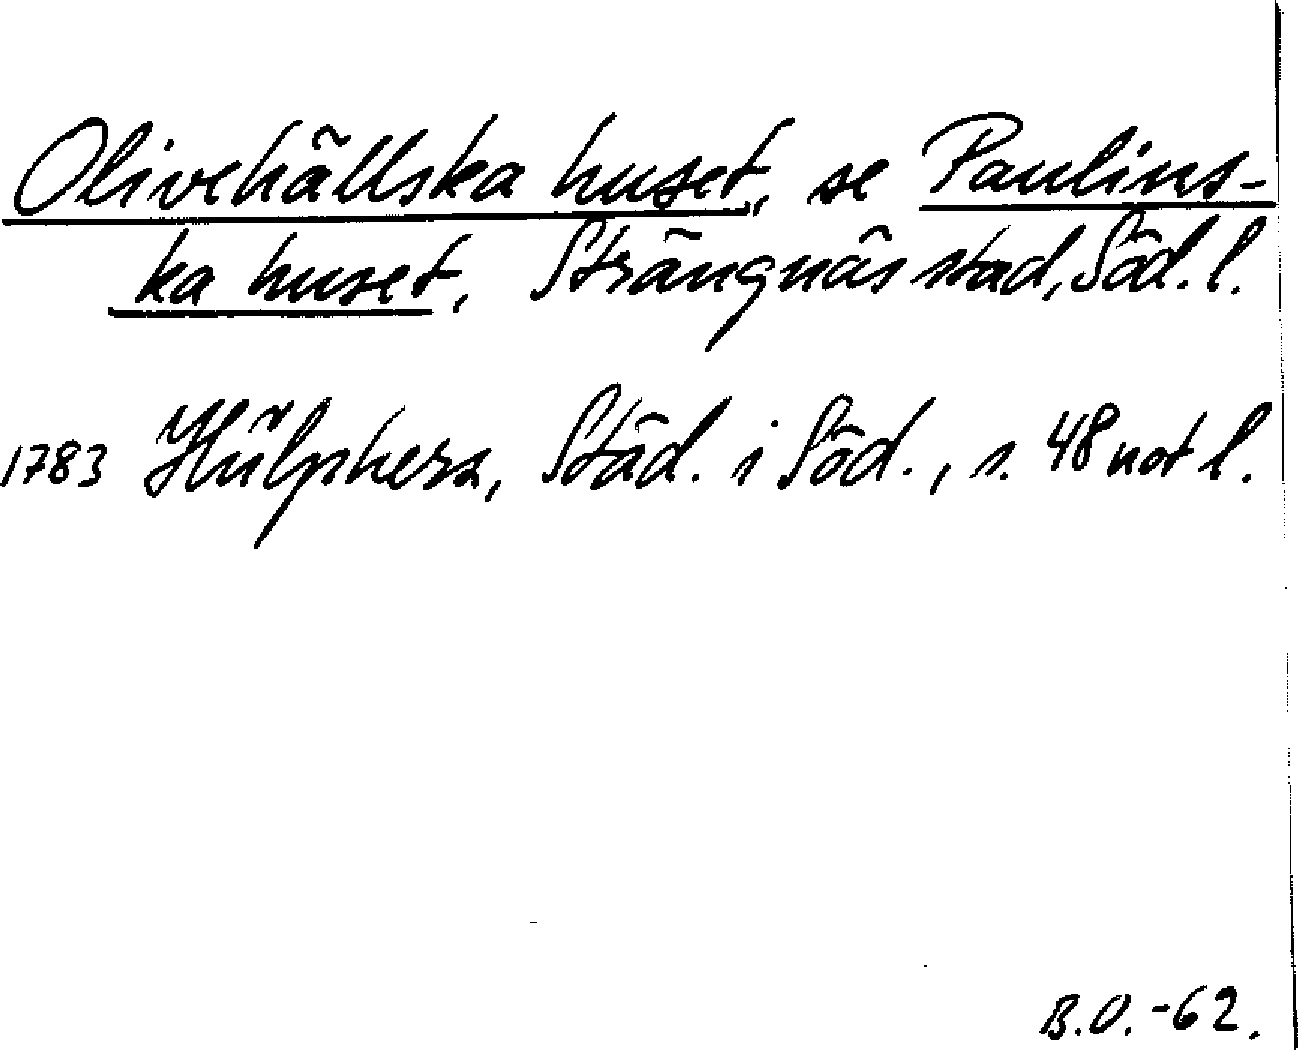 Olivehällska huset, se Paulins-
ka huset, Strängnäs stad, Söd. l.
1783 Hülphers, Städ. i Söd., s. 48 not l.
B.O. -62.